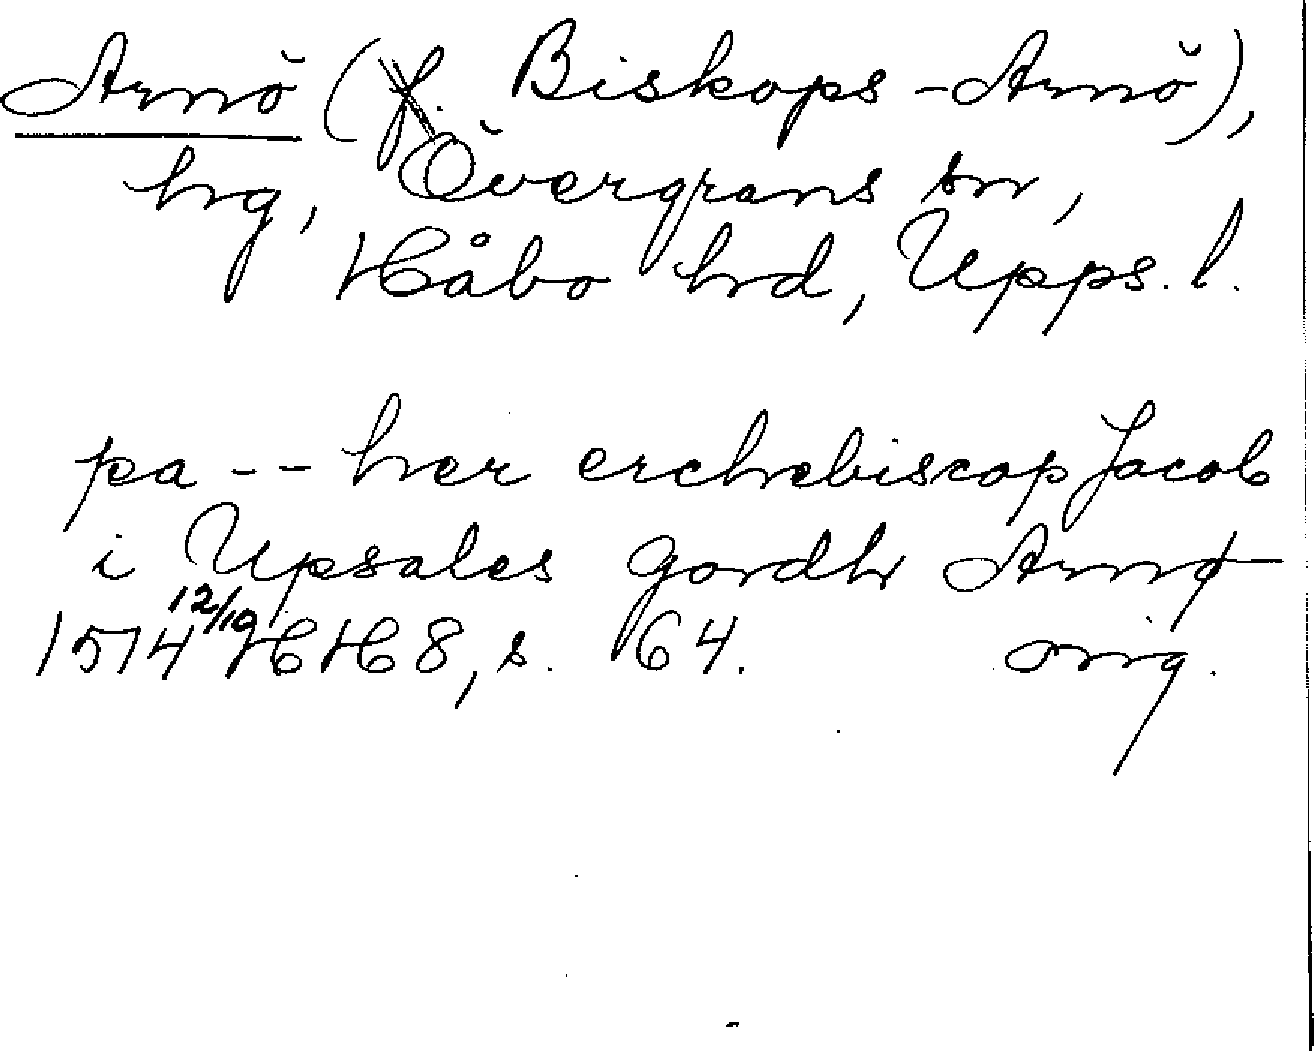 Arnö (f. Biskops-Arnö),
hrg, Övergrans sn,
Håbo hrd, Upps. l.
pa -- her erchebiscop Jacob
i Upsales gordh Arnø
1514 12/10 HH 8, s. 64. orig.